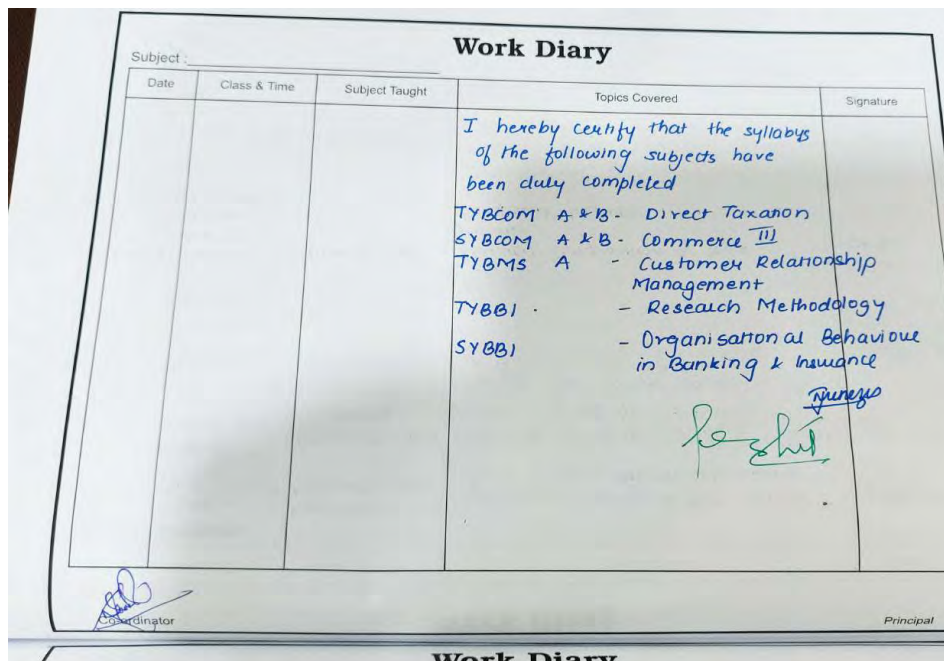 Work Diary
Subject :
Date
Class & Time
Subject Taught
Topics Covered
Signature
I hereby certify that the syllabys
of the following subjects have
been duly completed
TYBCOM A & B - Direct Taxation
SYBCOM A & B - Commerce III
TYBMS A - Customer Relationship
Management
TYBBI . - Research Methodology
SYBBI - Organisational Behaviour
in Banking & Insurance
Co-ordinator
Principal
Work Diary